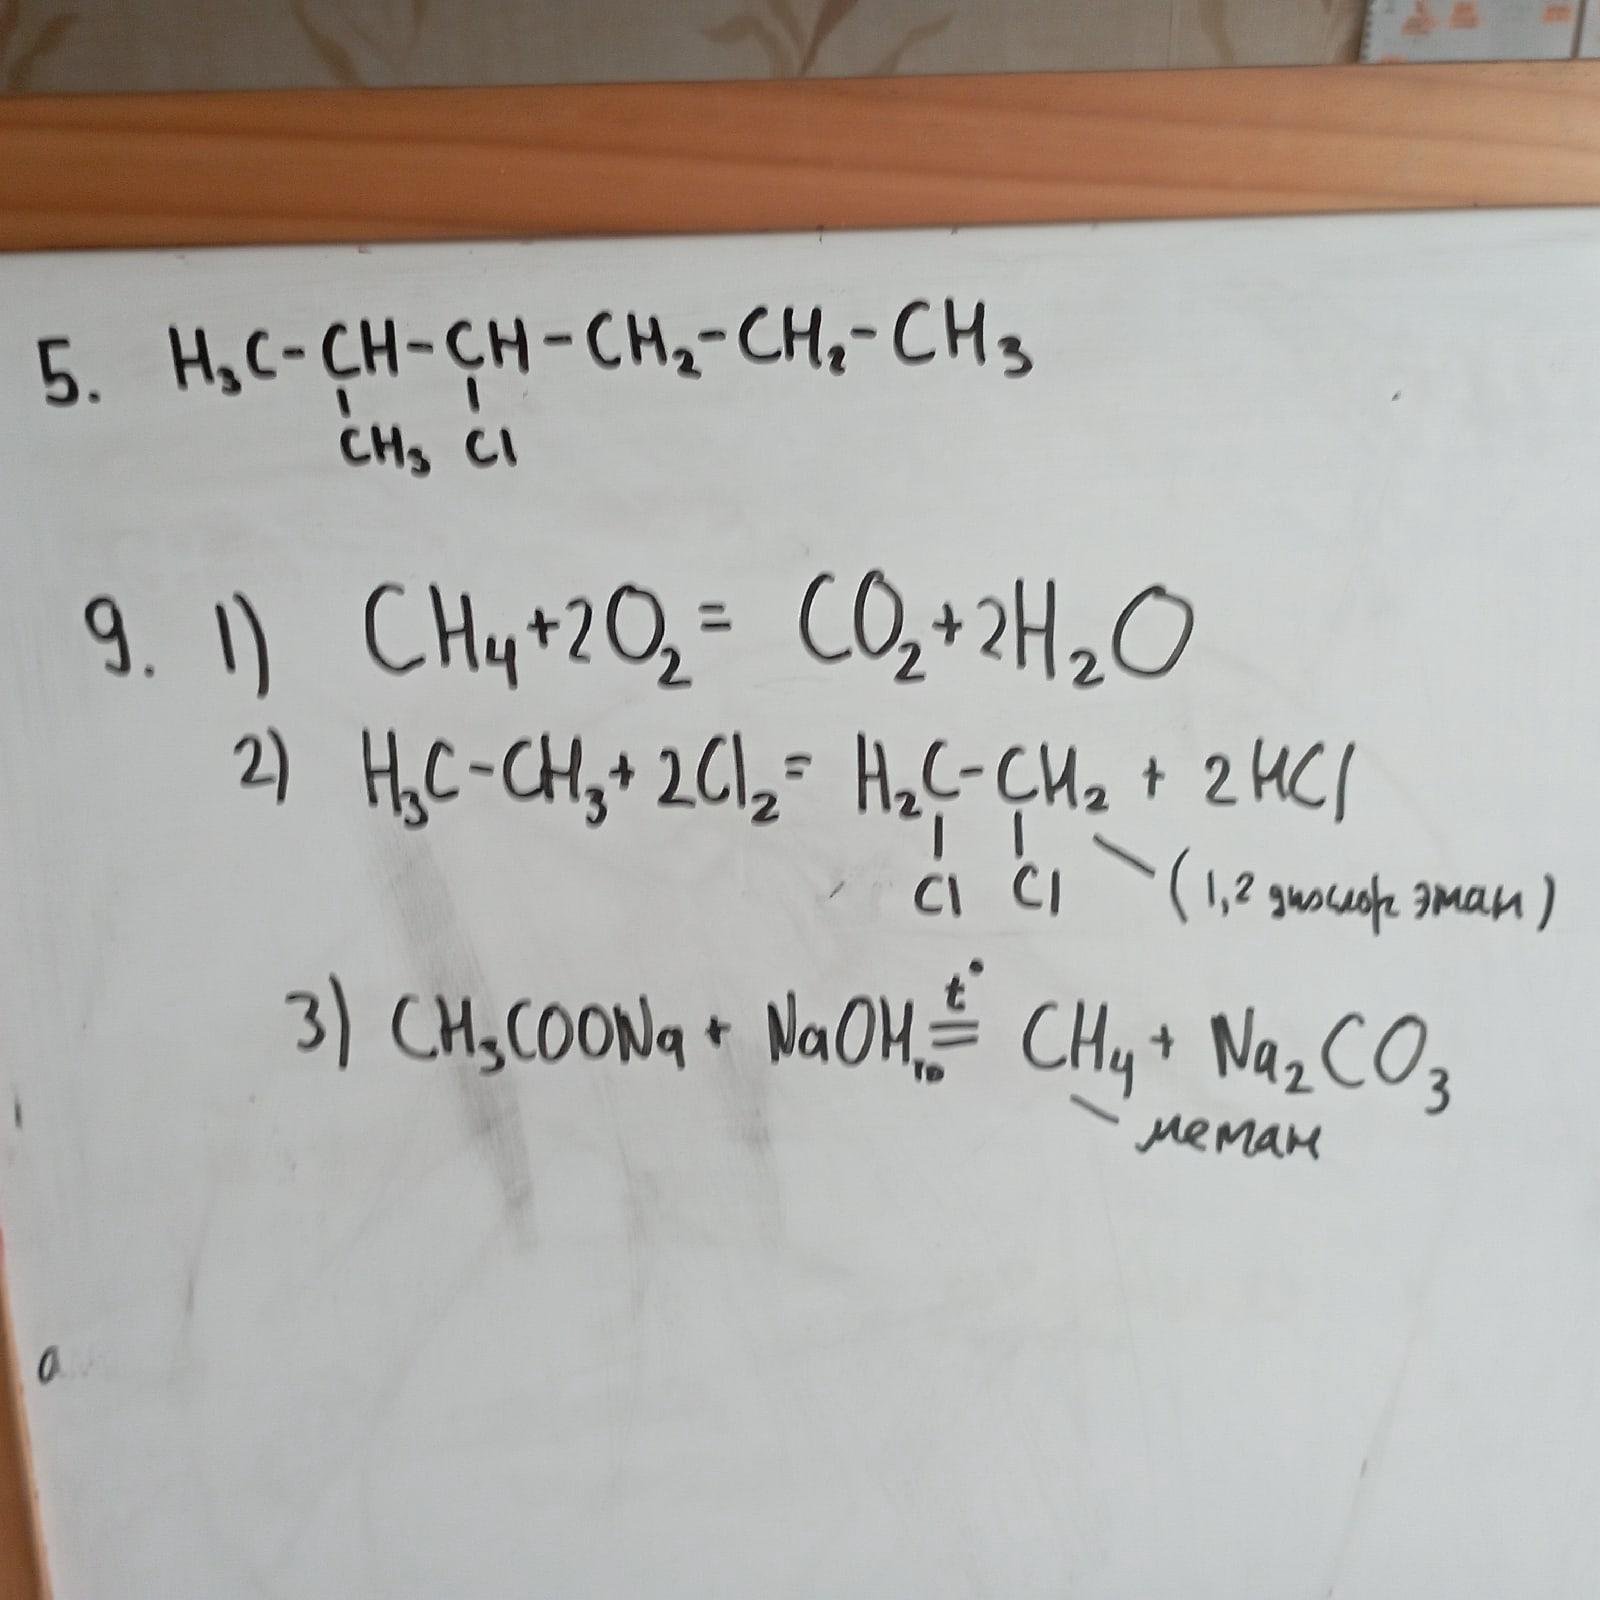 5. H₃C-CH-CH-CH₂-CH₂-CH₃
CH₃ Cl
9. 1) CH₄+2O₂= CO₂+2H₂O
2) H₃C-CH₃+2Cl₂= H₂C-CH₂ + 2HCl
Cl Cl (1,2 дихлор этан)
t°
3) CH₃COONa + NaOH тв = CH₄ + Na₂CO₃
метан
a